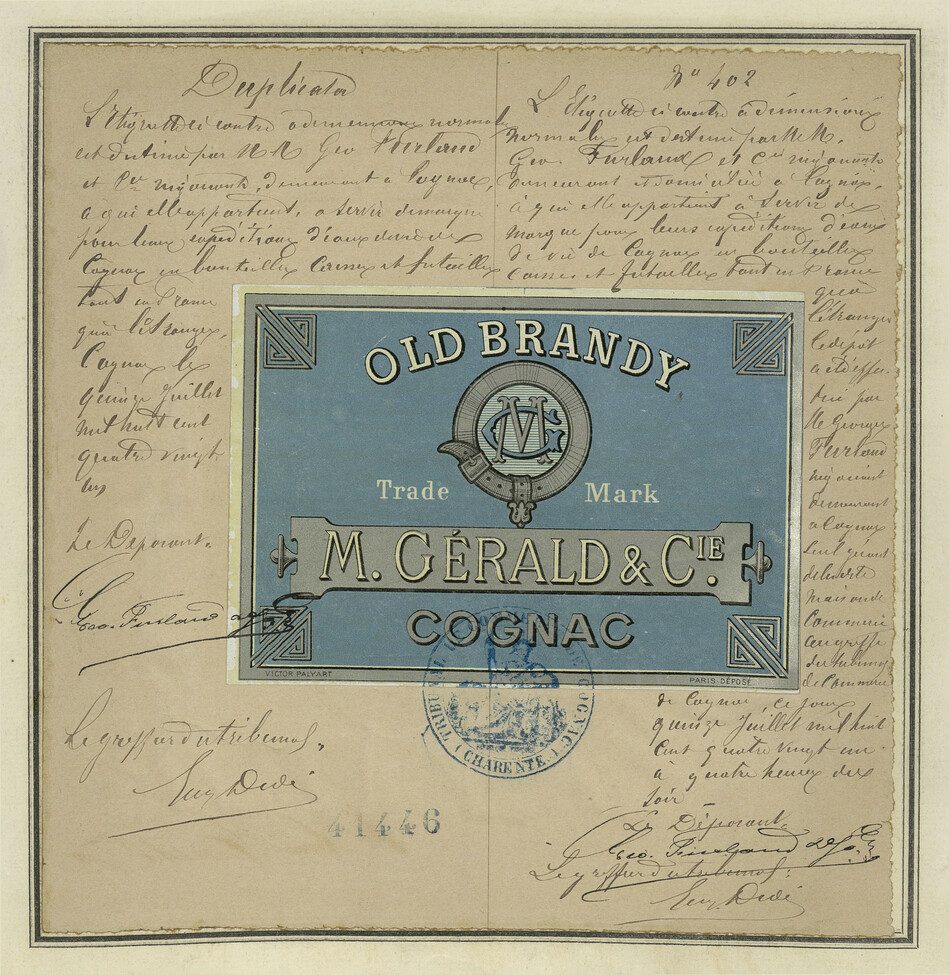 Duplicator
L'Etiquette ci contre a dimensions normales
est destiné par MM Geo Furlaud
et Cie négociants, demeurant a Cognac,
à qui elle appartient, a servir de marque
pour leurs expéditions d'eaux de vie de
Cognac en bouteilles Caisses et futailles
tant en France
qu'à l'étranger,
Cognac le
quinze Juillet
mil huit cent
quatre vingt
un
Le Déposant.
Geo. Furlaud & Cie
Le greffier du tribunal,
41446
No 402
L'Etiquette ci contre a dimensions
normales est destiné par MM.
Geo. Furlaud et Cie négociants
demeurant et domiciliés a Cognac,
à qui elle appartient à servir de
marque pour leurs expéditions d'eaux
de vie de Cognac en bouteilles
Caisses et futailles tant en France
qu'à
l'étranger
Le dépôt
a été effec-
tué par
Mr Georges
Furlaud
négociant
demeurant
a Cognac
seul gérant
de la dite
maison de
Commerce
au greffe
du tribunal
de Commerce
de Cognac, ce jour
quinze Juillet mil huit
cent quatre vingt un
à quatre heures du
soir
Le Déposant,
Geo. Furlaud & Cie
Le greffier du tribunal:
OLD BRANDY
MGC
Trade Mark
M. GÉRALD & CIE.
COGNAC
VICTOR PALYART
PARIS-DÉPOSÉ
TRIBUNAL DE COGNAC
(CHARENTE)